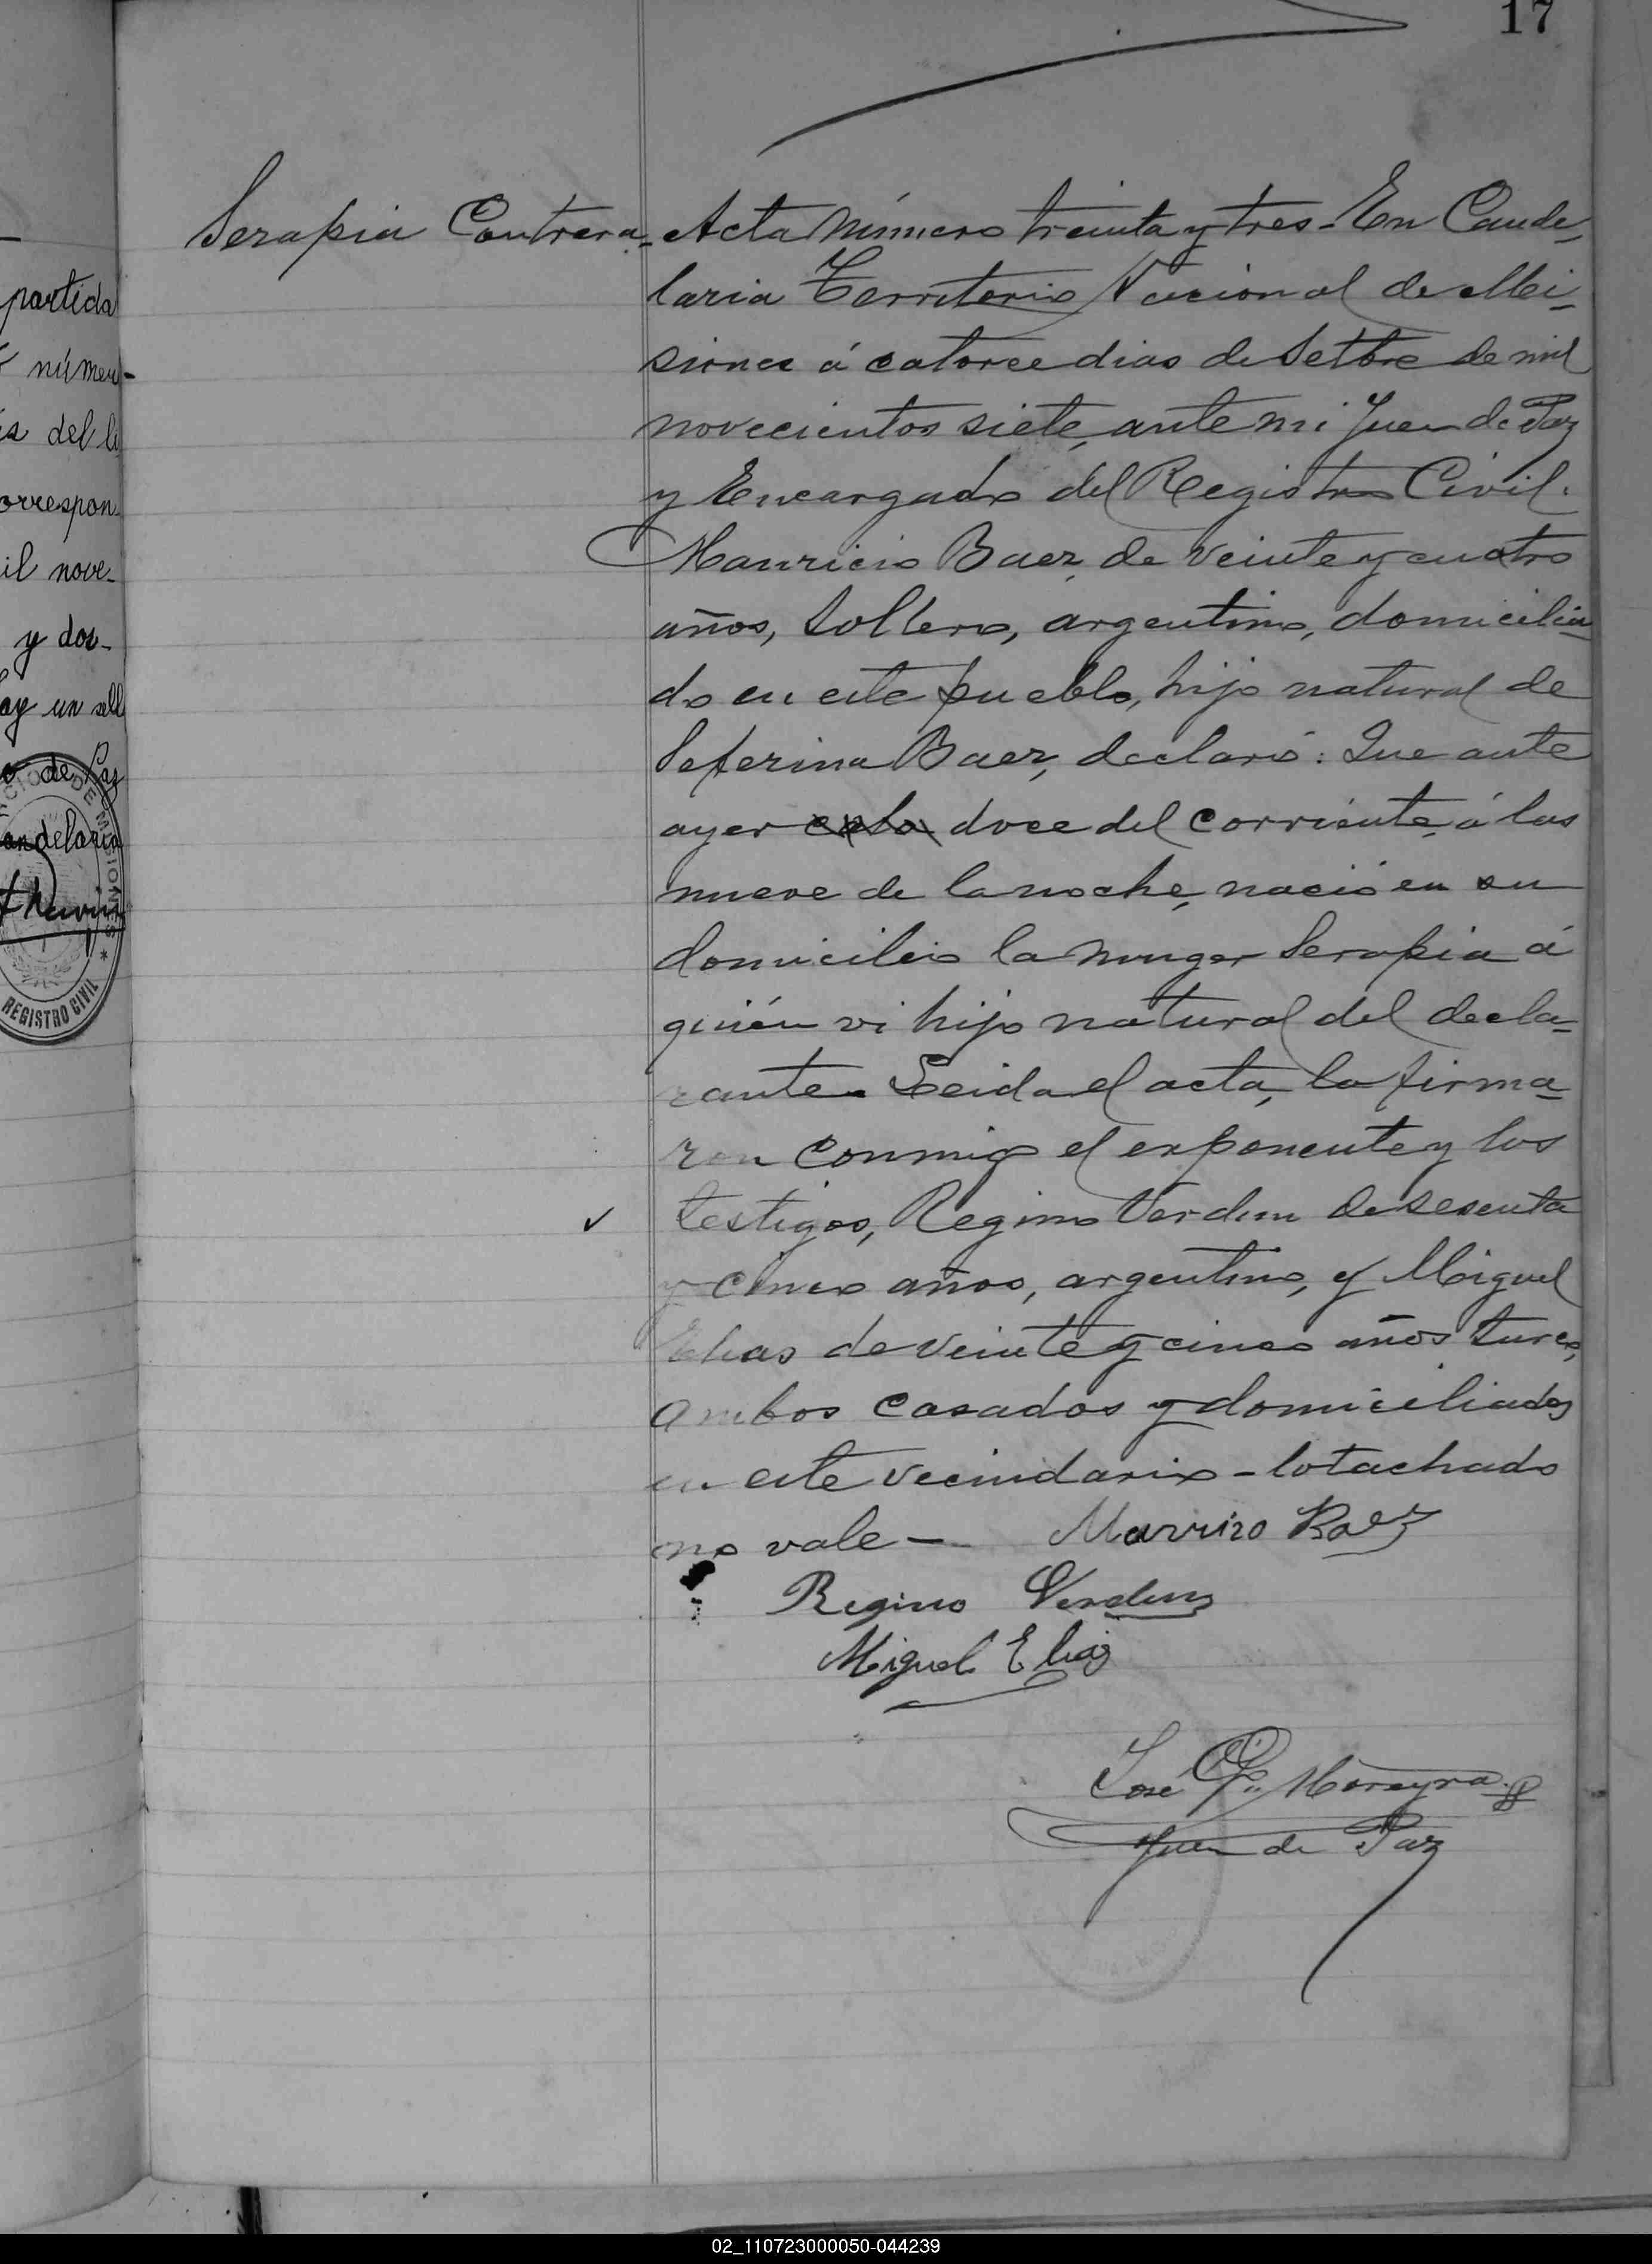 17
Serapia Contrera
Acta número treinta y tres - En Cande-
laria Territorio Nacional de Mi-
siones á catorce dias de Setbre de mil
novecientos siete, ante mi Juez de Paz
y Encargado del Registro Civil.
Mauricio Baez, de veinte y cuatro
años, soltero, argentino, domicilia-
do en este pueblo, hijo natural de
Seferina Baez, declaró: Que ante
ayer doce del corriente, á las
nueve de la noche, nació en su
domicilio la muger Serapia á
quién vi hijo natural del decla-
rante. Leida el acta, la firma-
ron conmigo el exponente y los
testigos, Regino Verdun de sesenta
y cinco años, argentino, y Miguel
Elias de veinte y cinco años turco,
ambos casados y domiciliados
en este vecindario - lo tachado
no vale -
Baez
Regino Verdun
Miguel Elias
José Moreyra
Juez de Paz
partida
númer-
del li
orrespon-
il nove-
y dos-
ay un sell
de Paz
andelaria
MISIONES *
REGISTRO CIVIL
02_110723000050-044239